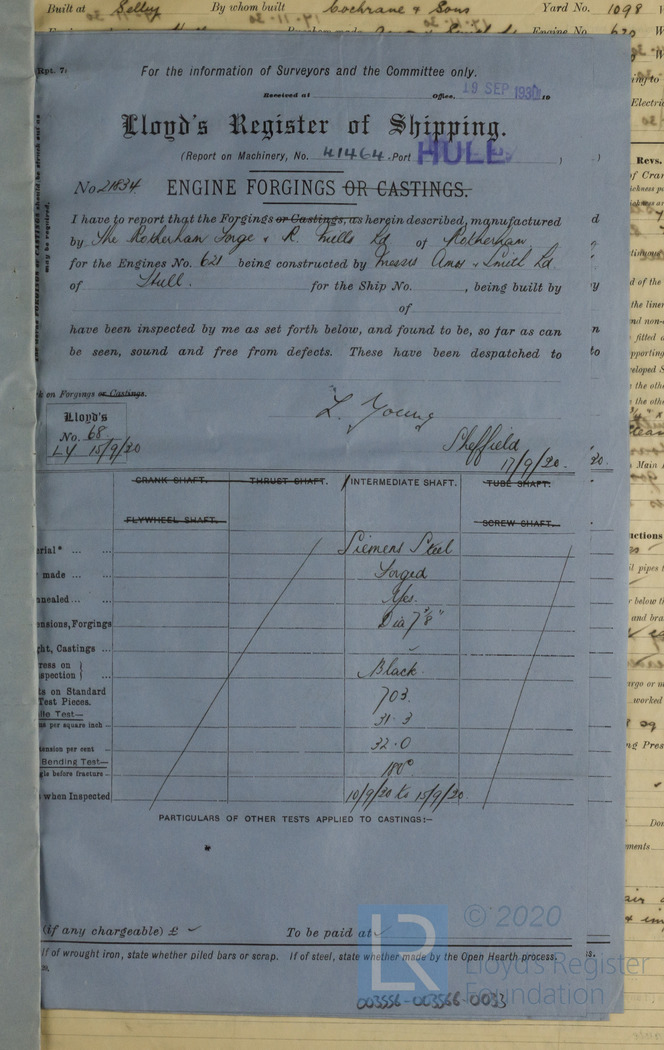 Built at Selby By whom built Cochrane & Sons Yard No. 1098
Rpt. 7.
For the information of Surveyors and the Committee only.
Received at Office, 19 SEP 1930 19
Lloyd's Register of Shipping.
(Report on Machinery, No. 41464 Port HULL )
No 21834 ENGINE FORGINGS OR CASTINGS.
I have to report that the Forgings or Castings, as herein described, manufactured
by The Rotherham Forge & R. Mills Ld of Rotherham
for the Engines No. 621 being constructed by Messrs Amos & Smith Ld
of Hull. for the Ship No. , being built by
of
have been inspected by me as set forth below, and found to be, so far as can
be seen, sound and free from defects. These have been despatched to
on Forgings or Castings.
L. Young
Lloyd's
No. 68
LY 15/9/20
Sheffield
17/9/20.
CRANK SHAFT. THRUST SHAFT. INTERMEDIATE SHAFT. TUBE SHAFT.
FLYWHEEL SHAFT. SCREW SHAFT.
erial* ... ... Siemens Steel
made ... ... Forged
nnealed ... ... Yes.
ensions, Forgings Dia 7 7/8"
ght, Castings ...
ress on
spection } ... Black.
ts on Standard
Test Pieces. 703.
ile Test—
ns per square inch - 31.3
tension per cent - 32.0
Bending Test—
gle before fracture - 180°
when Inspected 10/9/20 to 15/9/20
PARTICULARS OF OTHER TESTS APPLIED TO CASTINGS:—
(if any chargeable) £ To be paid at
If of wrought iron, state whether piled bars or scrap. If of steel, state whether made by the Open Hearth process.
© 2020
Lloyd's Register
Foundation
003556-003566-0033